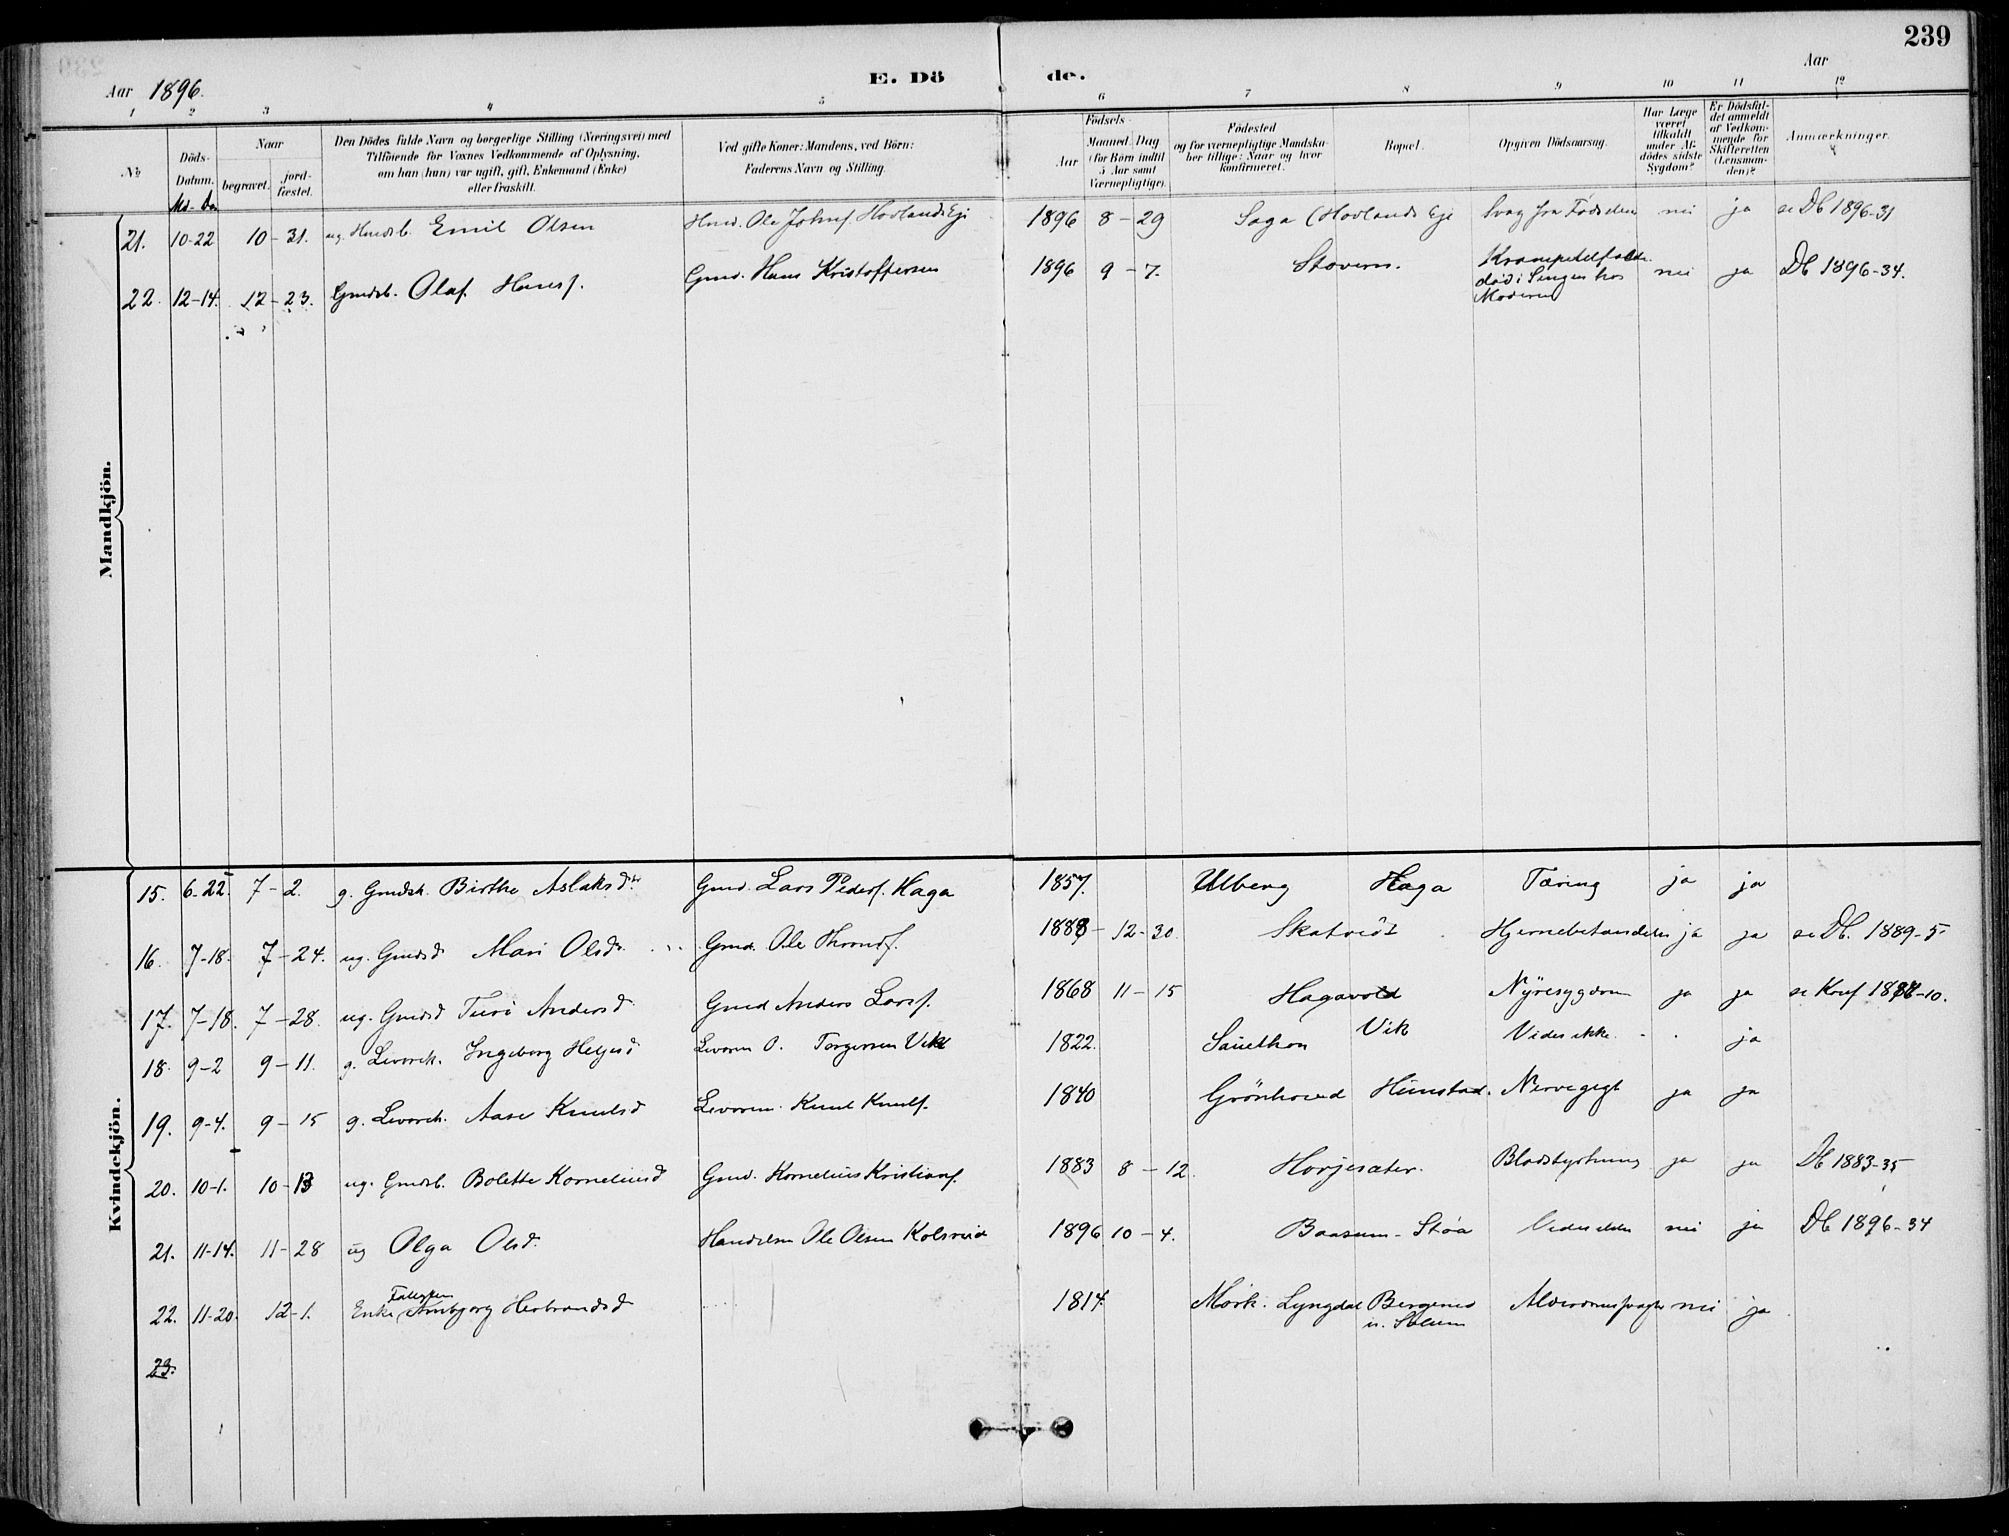 239
Aar 1896.
E. Dö de.
Aar
1 2 3 4 5 6 7 8 9 10 11 12
No
Döds-
Datum.
Md. Da
Naar
begravet.
jord-
fæstet.
Den Dödes fulde Navn og borgerlige Stilling (Næringsvei) med
Tilföiende for Voxnes Vedkommende af Oplysning,
om han (hun) var ugift, gift, Enkemand (Enke)
eller fraskilt.
Ved gifte Koner: Mandens, ved Börn:
Faderens Navn og Stilling.
Födsels-
Aar
Maaned Dag
(for Börn indtil
5 Aar samt
Værnepligtige).
Födested
og for værnepligtige Mandska-
ber tillige: Naar og hvor
konfirmeret.
Bopæl.
Opgiven Dödsaarsag.
Har Læge
været
tilkaldt
under Af-
dödes sidste
Sygdom?
Er Dödsfal-
det anmeldt
af Vedkom-
mende for
Skifteretten
(Lensman-
den)?
Anmærkninger.
Mandkjön.
21. 10-22 10-31. ug. Emil Olsen Ole Johnsf. Hovlands Eje 1896 8-29 Saga (Hovlands Eje Svag fra Fødselen nei ja se Db 1896-31
22. 12-14. 12-23. Gmdsb. Olaf Hansf. Gmd. Hans Kristoffersen 1896 9-7. Stavern. Krampetilfælde
død i Sengen hos
Moderen nei ja Db 1896-34.
Kvindekjön.
15. 6-22. 7-2. g. Gmdsk. Birthe Aslaksdtr Gmd. Lars Pedersf. Haga 1857. Ulberg Haga Tæring ja ja
16. 7-18. 7-24. ug. Gmdsd Mari Olsdr. Gmd. Ole Throndsf. 1888-12-30. Skatvedt Hjernebetændelse ja ja se Db. 1889-5
17. 7-18. 7-28. ug. Gmdsd Turi Andersd Gmd Anders Larsf. 1868 11-15 Hagavold Nyresygdom ja ja se Konf 1888-10.
18. 9-2 9-11. g. Levorek. Ingeborg Helgesd Levorm O. Torgersen Vik 1822. Sauethon Vik Vides ikke. - . ja
19. 9-4. 9-15 g. Levorek. Aase Knudsd Levorm. Knut Knuts. 1840 Grönhoved Himstad. Nervegigt ja ja
20. 10-1. 10-13 ug. Gmdsb. Bolette Korneliusd Gmd. Kornelius Kristiansf. 1883 8-12. Horjesæter. Blodstyrtning ja ja Db 1883-35
21. 11-14. 11-28 ug Olga Olsd. Handelsm Ole Olsen Kolsrud 1896 10-4. Baasum-Støa Vides ikke nei ja Db 1896-34
22. 11-20. 12-1. Enke, Arnbjorg Herbrandsd 1814. Mørk. Lyngdal Bergenes
u. Solum Alderdomssvaghed nei ja
23.